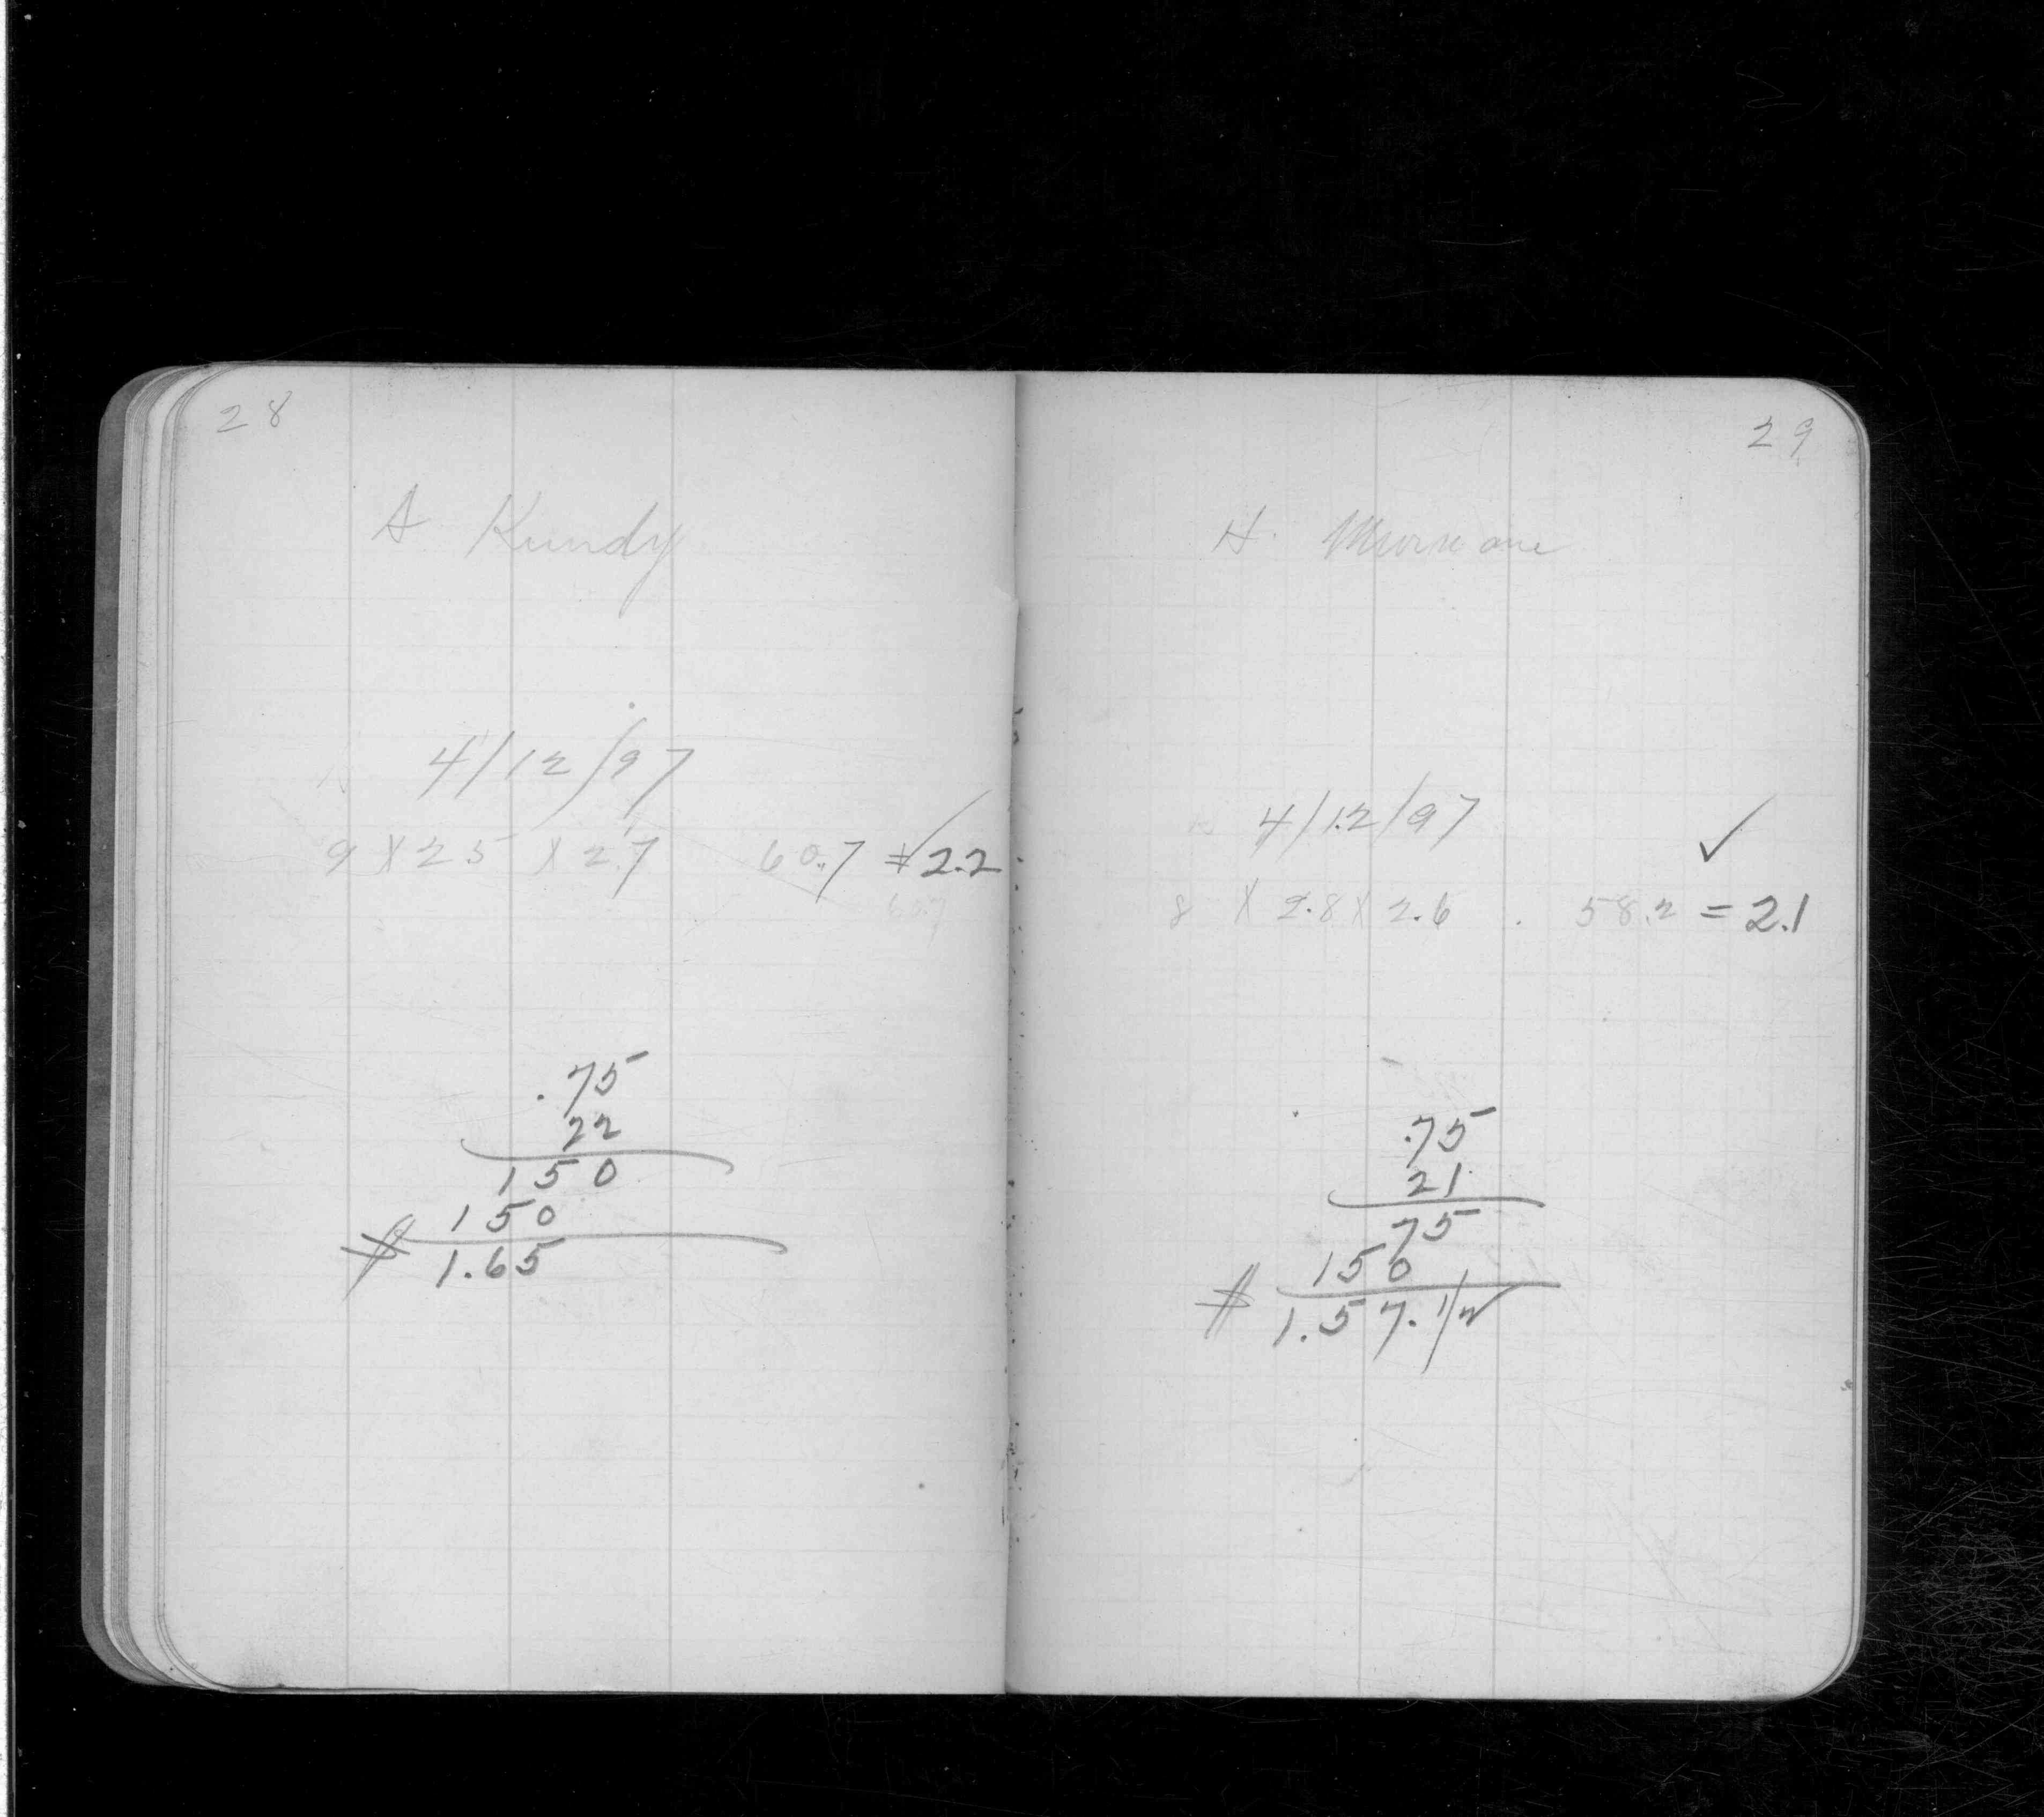 28
A Kundy
4/12/97
9 X 2 5 X 2.7 60.7 = 2.2 ✓
60.7
.75
22
150
150
$ 1.65
29
H.
4/12/97 ✓
8 X 2.8 X 2.6 . 58.2 = 2.1
.75
21
75
150
$ 1.57.1/2